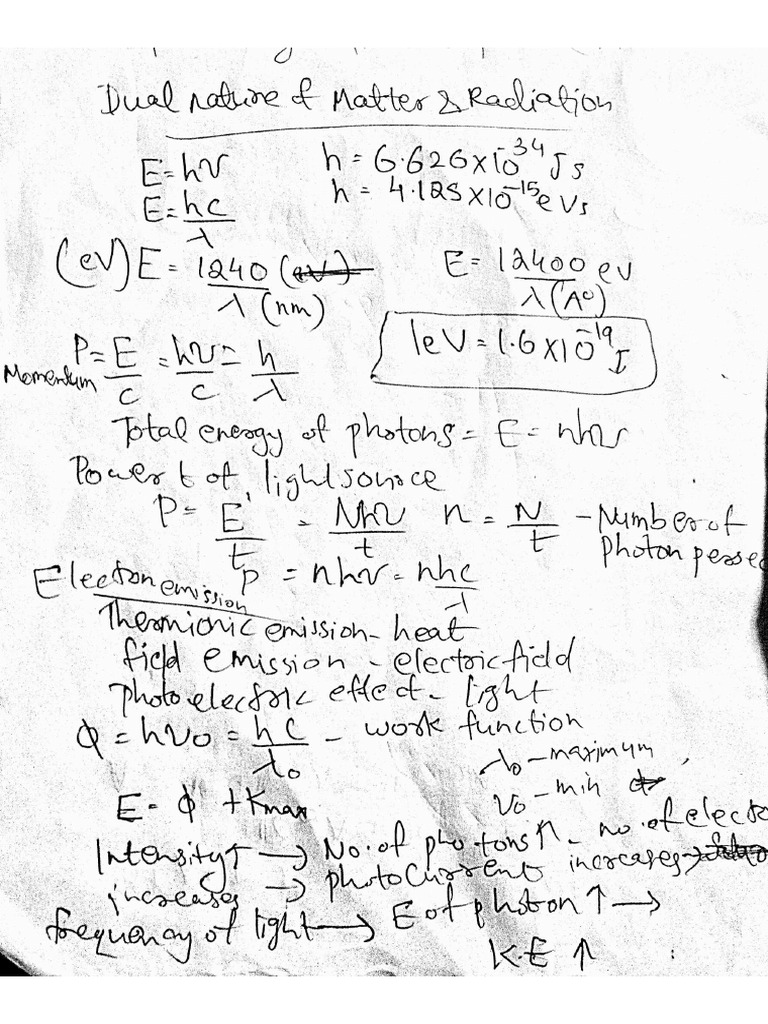 Dual nature of Matter & Radiation
E=hν h = 6.626×10^-34 Js
E=hc/λ h = 4.125×10^-15 eVs
(eV) E = 1240/λ(nm) E = 12400/λ(A°) ev
1eV = 1.6×10^-19 J
Momentum P = E/c = hν/c = h/λ
Total energy of photons = E = nhν
Power t of light source
P = E/t = Nhν/t n = N/t - Number of
photon persec
P = nhν = nhc/λ
Electron emission
Thermionic emission - heat
field emission - electric field
photo electric effect - light
φ = hν0 = hc/λ0 - work function
λ0 - maximum
ν0 - min
E = φ + Kmax
Intensity↑ → No. of photons↑ - no. of electro
increases → photo current increases →
frequency of light → E of photon ↑ →
K.E ↑